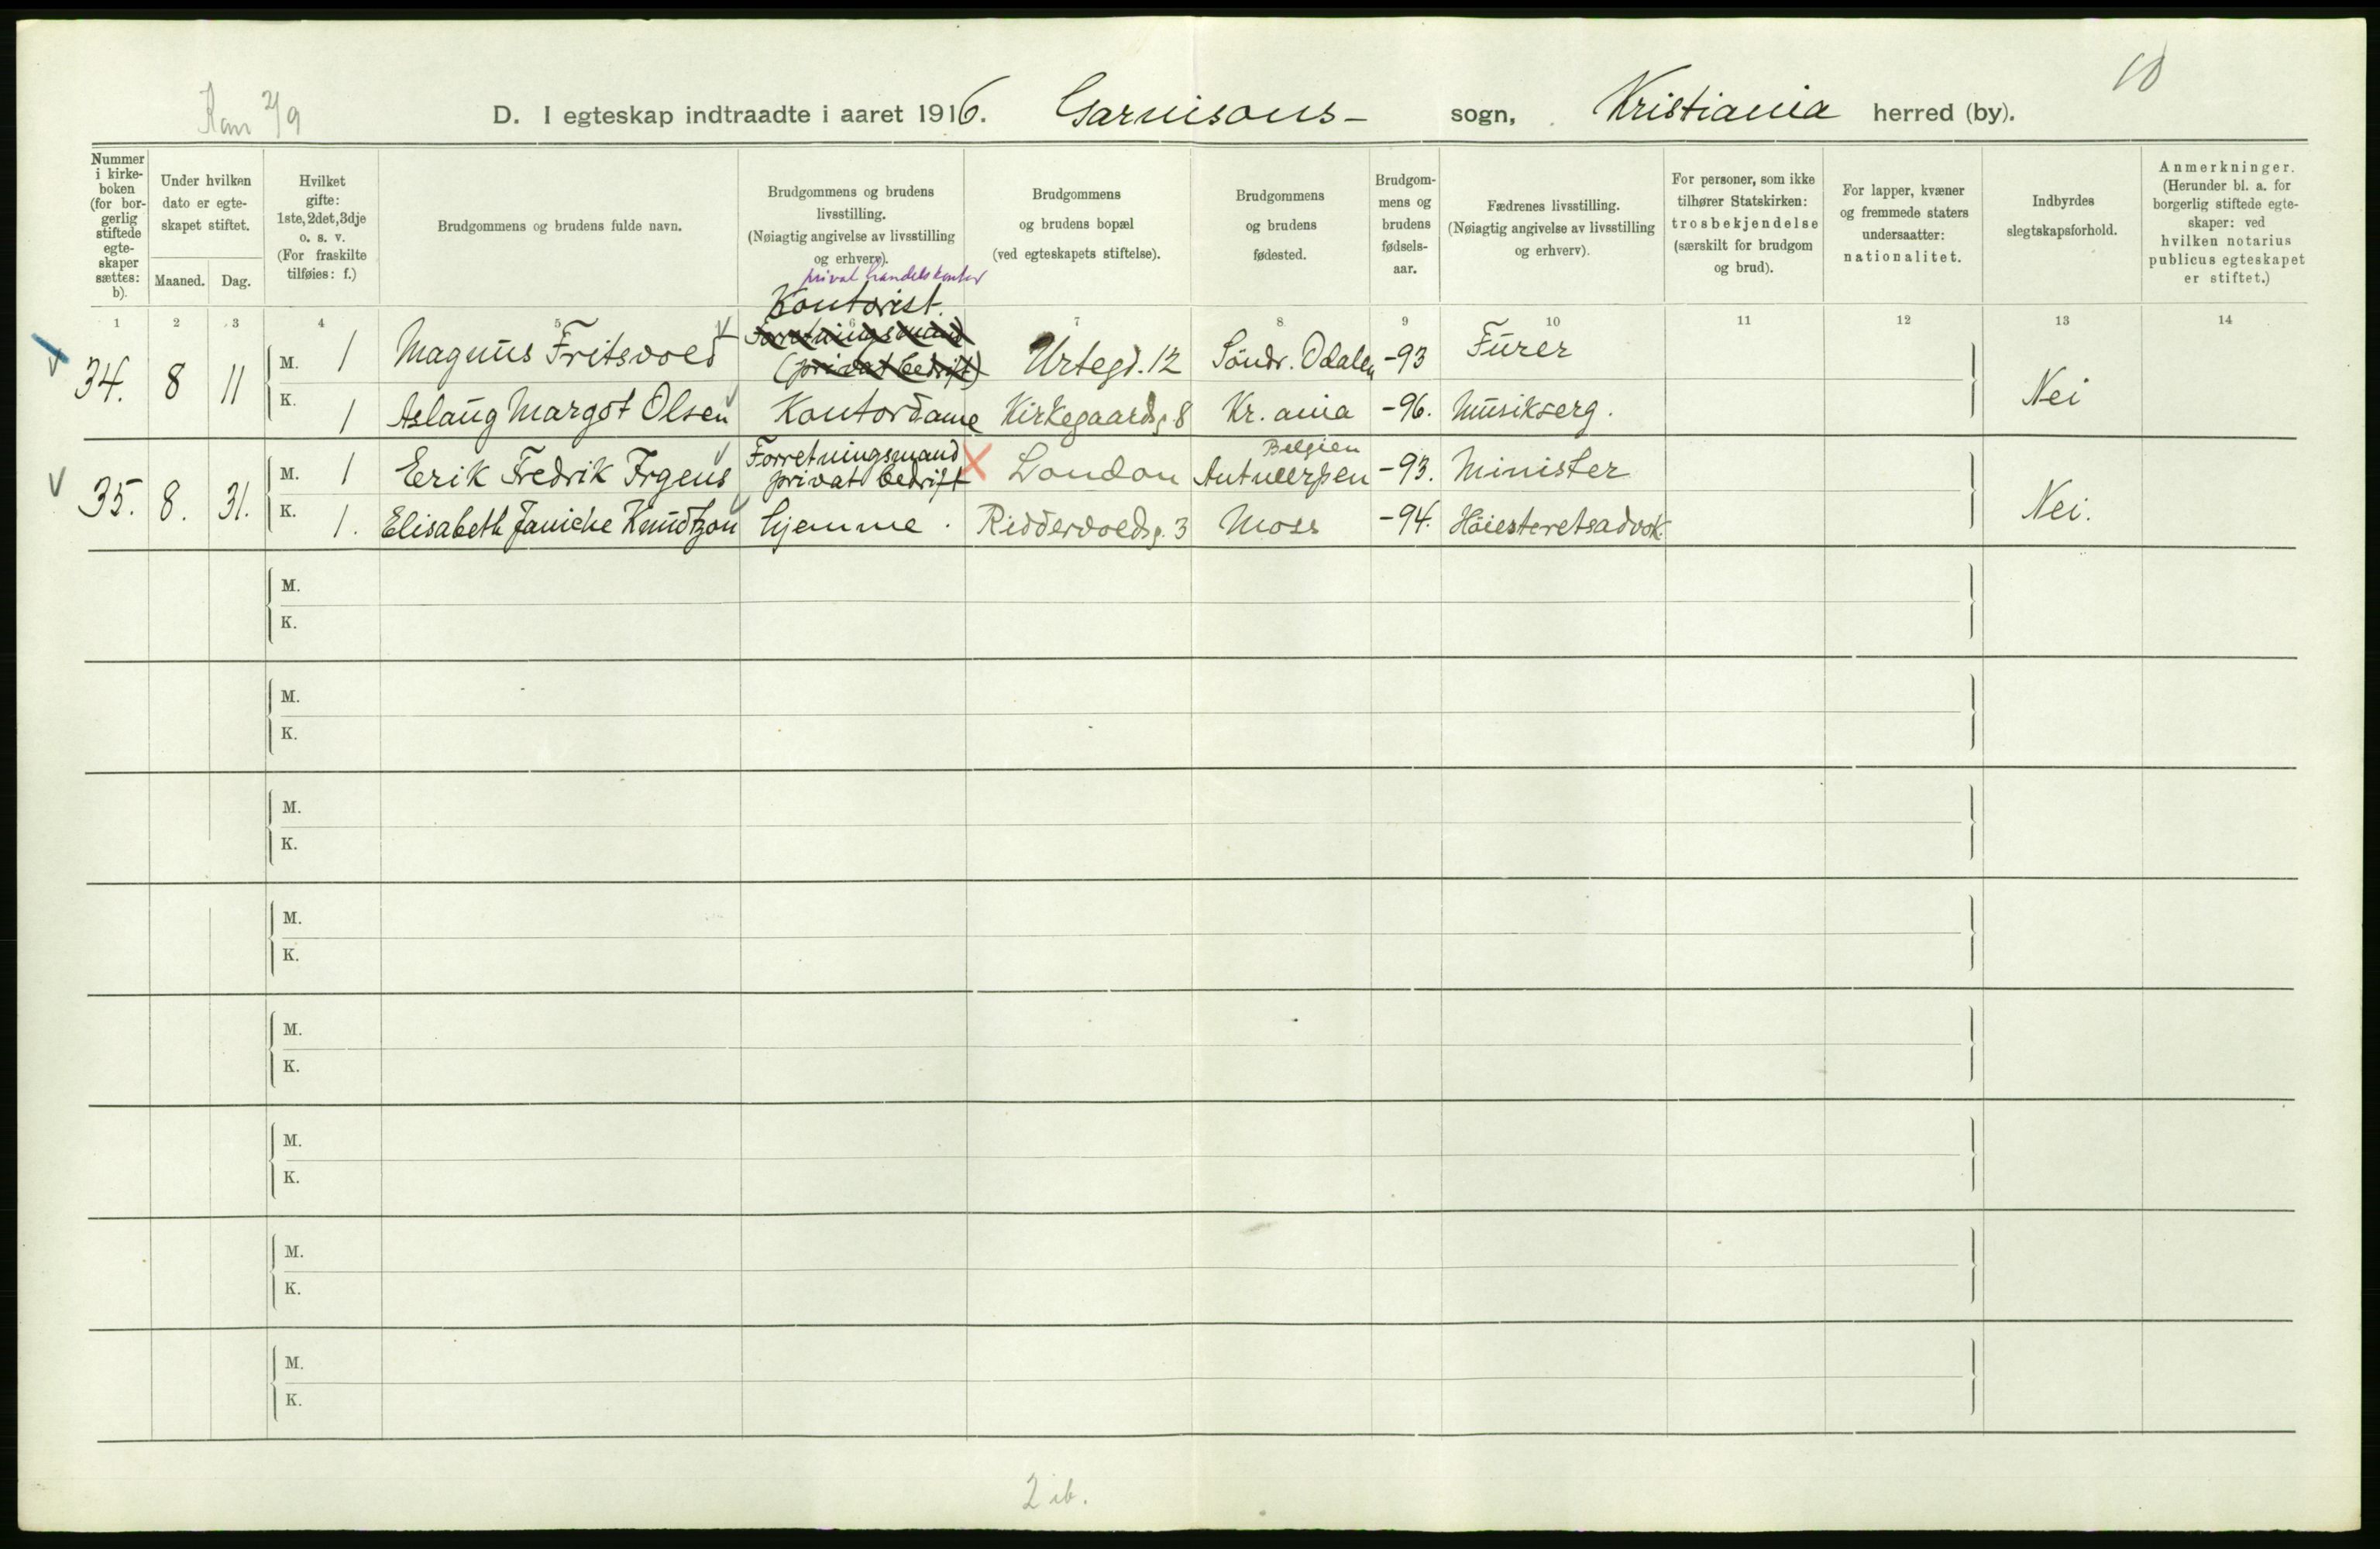 2/9
10
D. I egteskap indtraadte i aaret 1916. Garnisons- sogn, Kristiania herred (by).
Nummer i kirkeboken (for borgerlig stiftede egteskaper sættes: b).
Under hvilken dato er egteskapet stiftet.
Maaned. Dag.
Hvilket gifte: 1ste, 2det, 3dje o. s. v. (For fraskilte tilføies: f.)
Brudgommens og brudens fulde navn.
Brudgommens og brudens livsstilling. (Nøiagtig angivelse av livsstilling og erhverv).
Brudgommens og brudens bopæl (ved egteskapets stiftelse).
Brudgommens og brudens fødested.
Brudgommens og brudens fødselsaar.
Fædrenes livsstilling. (Nøiagtig angivelse av livsstilling og erhverv).
For personer, som ikke tilhører Statskirken: trosbekjendelse (særskilt for brudgom og brud).
For lapper, kvæner og fremmede staters undersaatter: nationalitet.
Indbyrdes slegtskapsforhold.
Anmerkninger. (Herunder bl. a. for borgerlig stiftede egteskaper: ved hvilken notarius publicus egteskapet er stiftet.)
1 2 3 4 5 6 7 8 9 10 11 12 13 14
privat handelskontor
Kontorist.
Forretningsmand
(privat bedrift)
34. 8 11 M. 1 Magnus Fritsvold Urtegd. 12 Söndr. Odalen -93 Furer
K. 1 Aslaug Margot Olsen Kontordame Kirkegaardsg. 8 Kr.ania -96. Musikserg. Nei
Forretningsmand Belgien
35. 8. 31. M. 1 Eerik Fredrik Irgens privat bedrift London Antwerpen -93. Minister
K. 1. Elisabeth Janiche Knudtzon hjemme. Riddervoldsg. 3 Moss -94. Höiesteretsadvok. Nei.
M.
K.
M.
K.
M.
K.
M.
K.
M.
K.
M.
K.
M.
K.
M.
K.